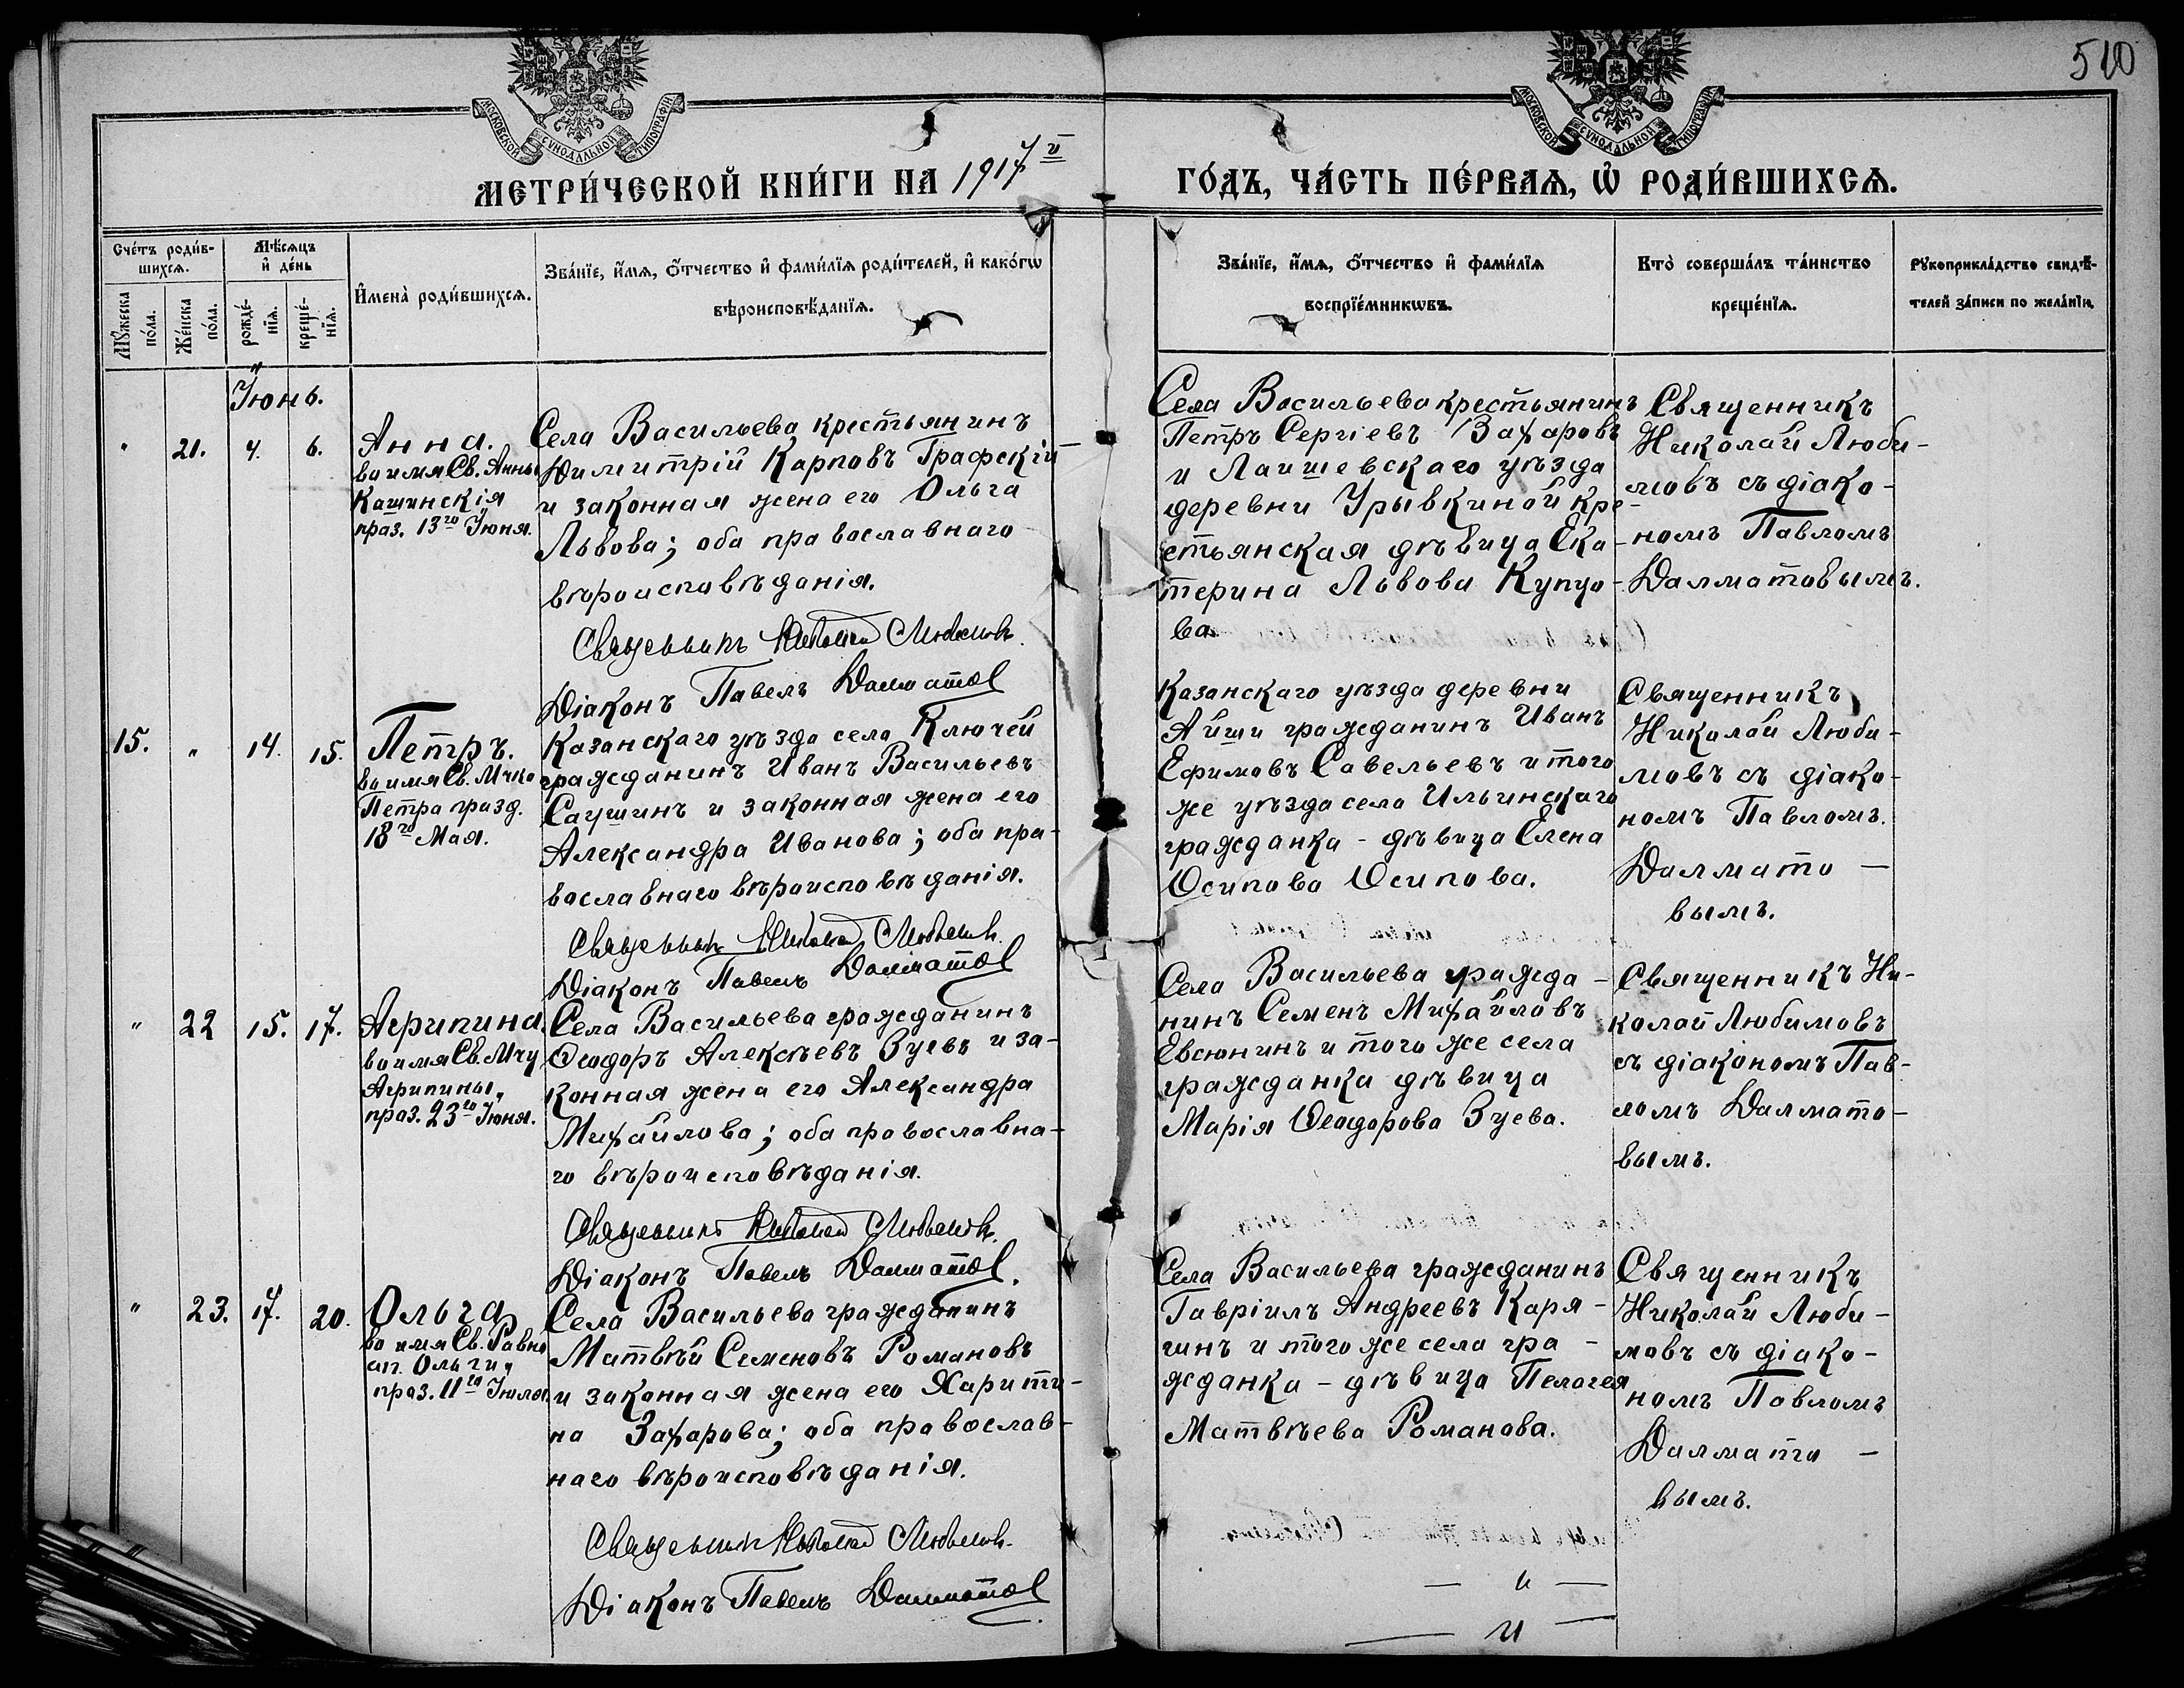 510
МОСКОВСКОЙ СѴНОДАЛЬНОЙ ТИПОГРАФІИ
МОСКОВСКОЙ СѴНОДАЛЬНОЙ ТИПОГРАФІИ
МЕТРИ́ЧЕСКОЙ КНИ́ГИ НА 1917й
ГО́ДЪ, ЧА́СТЬ ПЕ́РВАѦ, Ѡ҆ РОДИ́ВШИХСѦ.
Сче́тъ роди́в-
шихсѧ.
Мѣ́сѧцъ
и҆ де́нь
Мꙋ́жеска
по́ла.
Же́нска
по́ла.
рожде́-
нїѧ.
креще́-
нїѧ.
И҆мена̀ роди́вшихсѧ.
Зва́нїе, и҆́мѧ, ѻ҆́тчество и҆ фами́лїѧ роди́телей, и҆ како́гѡ
вѣроисповѣ́данїѧ.
Зва́нїе, и҆́мѧ, ѻ҆́тчество и҆ фами́лїѧ
воспрїе́мникѡвъ.
Кто̀ соверша́лъ та́инство
креще́нїѧ.
Рꙋкоприкла́дство свидѣ́-
телей за́писи по жела́нїю.
Іюнь.
" 21. 4. 6.
Анна.
во имя Св. Анны
Кашинскія
праз. 13го Іюня.
Села Васильева крестьянинъ
Димитрій Карповъ Графскій
и законная жена его Ольга
Львова; оба православнаго
вѣроисповѣданія.
Священникъ Николай Любимовъ.
Діаконъ Павелъ Далматов
Села Васильева крестьянинъ
Петръ Сергіевъ Захаровъ
и Лаишевскаго уѣзда
деревни Урывкиной кре-
стьянская дѣвица Ека-
терина Львова Купцо-
ва.
Священникъ
Николай Люби-
мовъ съ діако-
номъ Павломъ
Далматовымъ.
15. " 14. 15.
Петръ.
во имя Св. Мчка
Петра празд.
18го Мая.
Казанскаго уѣзда села Ключей
гражданинъ Иванъ Васильевъ
Саушинъ и законная жена его
Александра Иванова; оба пра-
вославнаго вѣроисповѣданія.
Священникъ Николай Любимовъ.
Діаконъ Павелъ Далматов
Казанскаго уѣзда деревни
Айши гражданинъ Иванъ
Ефимовъ Савельевъ и того
же уѣзда села Ильинскаго
гражданка - дѣвица Елена
Осипова Осипова.
Священникъ
Николай Люби-
мовъ съ діако-
номъ Павломъ.
Далмато-
вымъ.
" 22 15. 17.
Агрипина.
во имя Св. Мчц
Агрипины,
праз. 23го Іюня.
Села Васильева гражданинъ
Ѳеодоръ Алексѣевъ Зуевъ и за-
конная жена его Александра
Михайлова; оба православна-
го вѣроисповѣданія.
Священникъ Николай Любимовъ.
Діаконъ Павелъ Далматов.
Села Васильева гражда-
нинъ Семенъ Михайловъ
Евсюнинъ и того же села
гражданка дѣвица
Марія Ѳеодорова Зуева.
Священникъ Ни-
колай Любимовъ
съ діакономъ Пав-
ломъ Далмато-
вымъ.
" 23. 17. 20.
Ольга
во имя Св. Равно
ап. Ольги,
праз. 11го Іюля.
Села Васильева гражданинъ
Матвѣй Семеновъ Романовъ
и законная жена его Харити-
на Захарова; оба православ-
наго вѣроисповѣданія.
Священникъ Николай Любимовъ.
Діаконъ Павелъ Далматов.
Села Васильева гражданинъ
Гавріилъ Андреевъ Каря-
гинъ и того же села гра-
жданка - дѣвица Пелагея
Матвѣева Романова.
Священникъ
Николай Люби-
мовъ съ діако-
номъ Павломъ
Далмато-
вымъ.
— и —
— и —